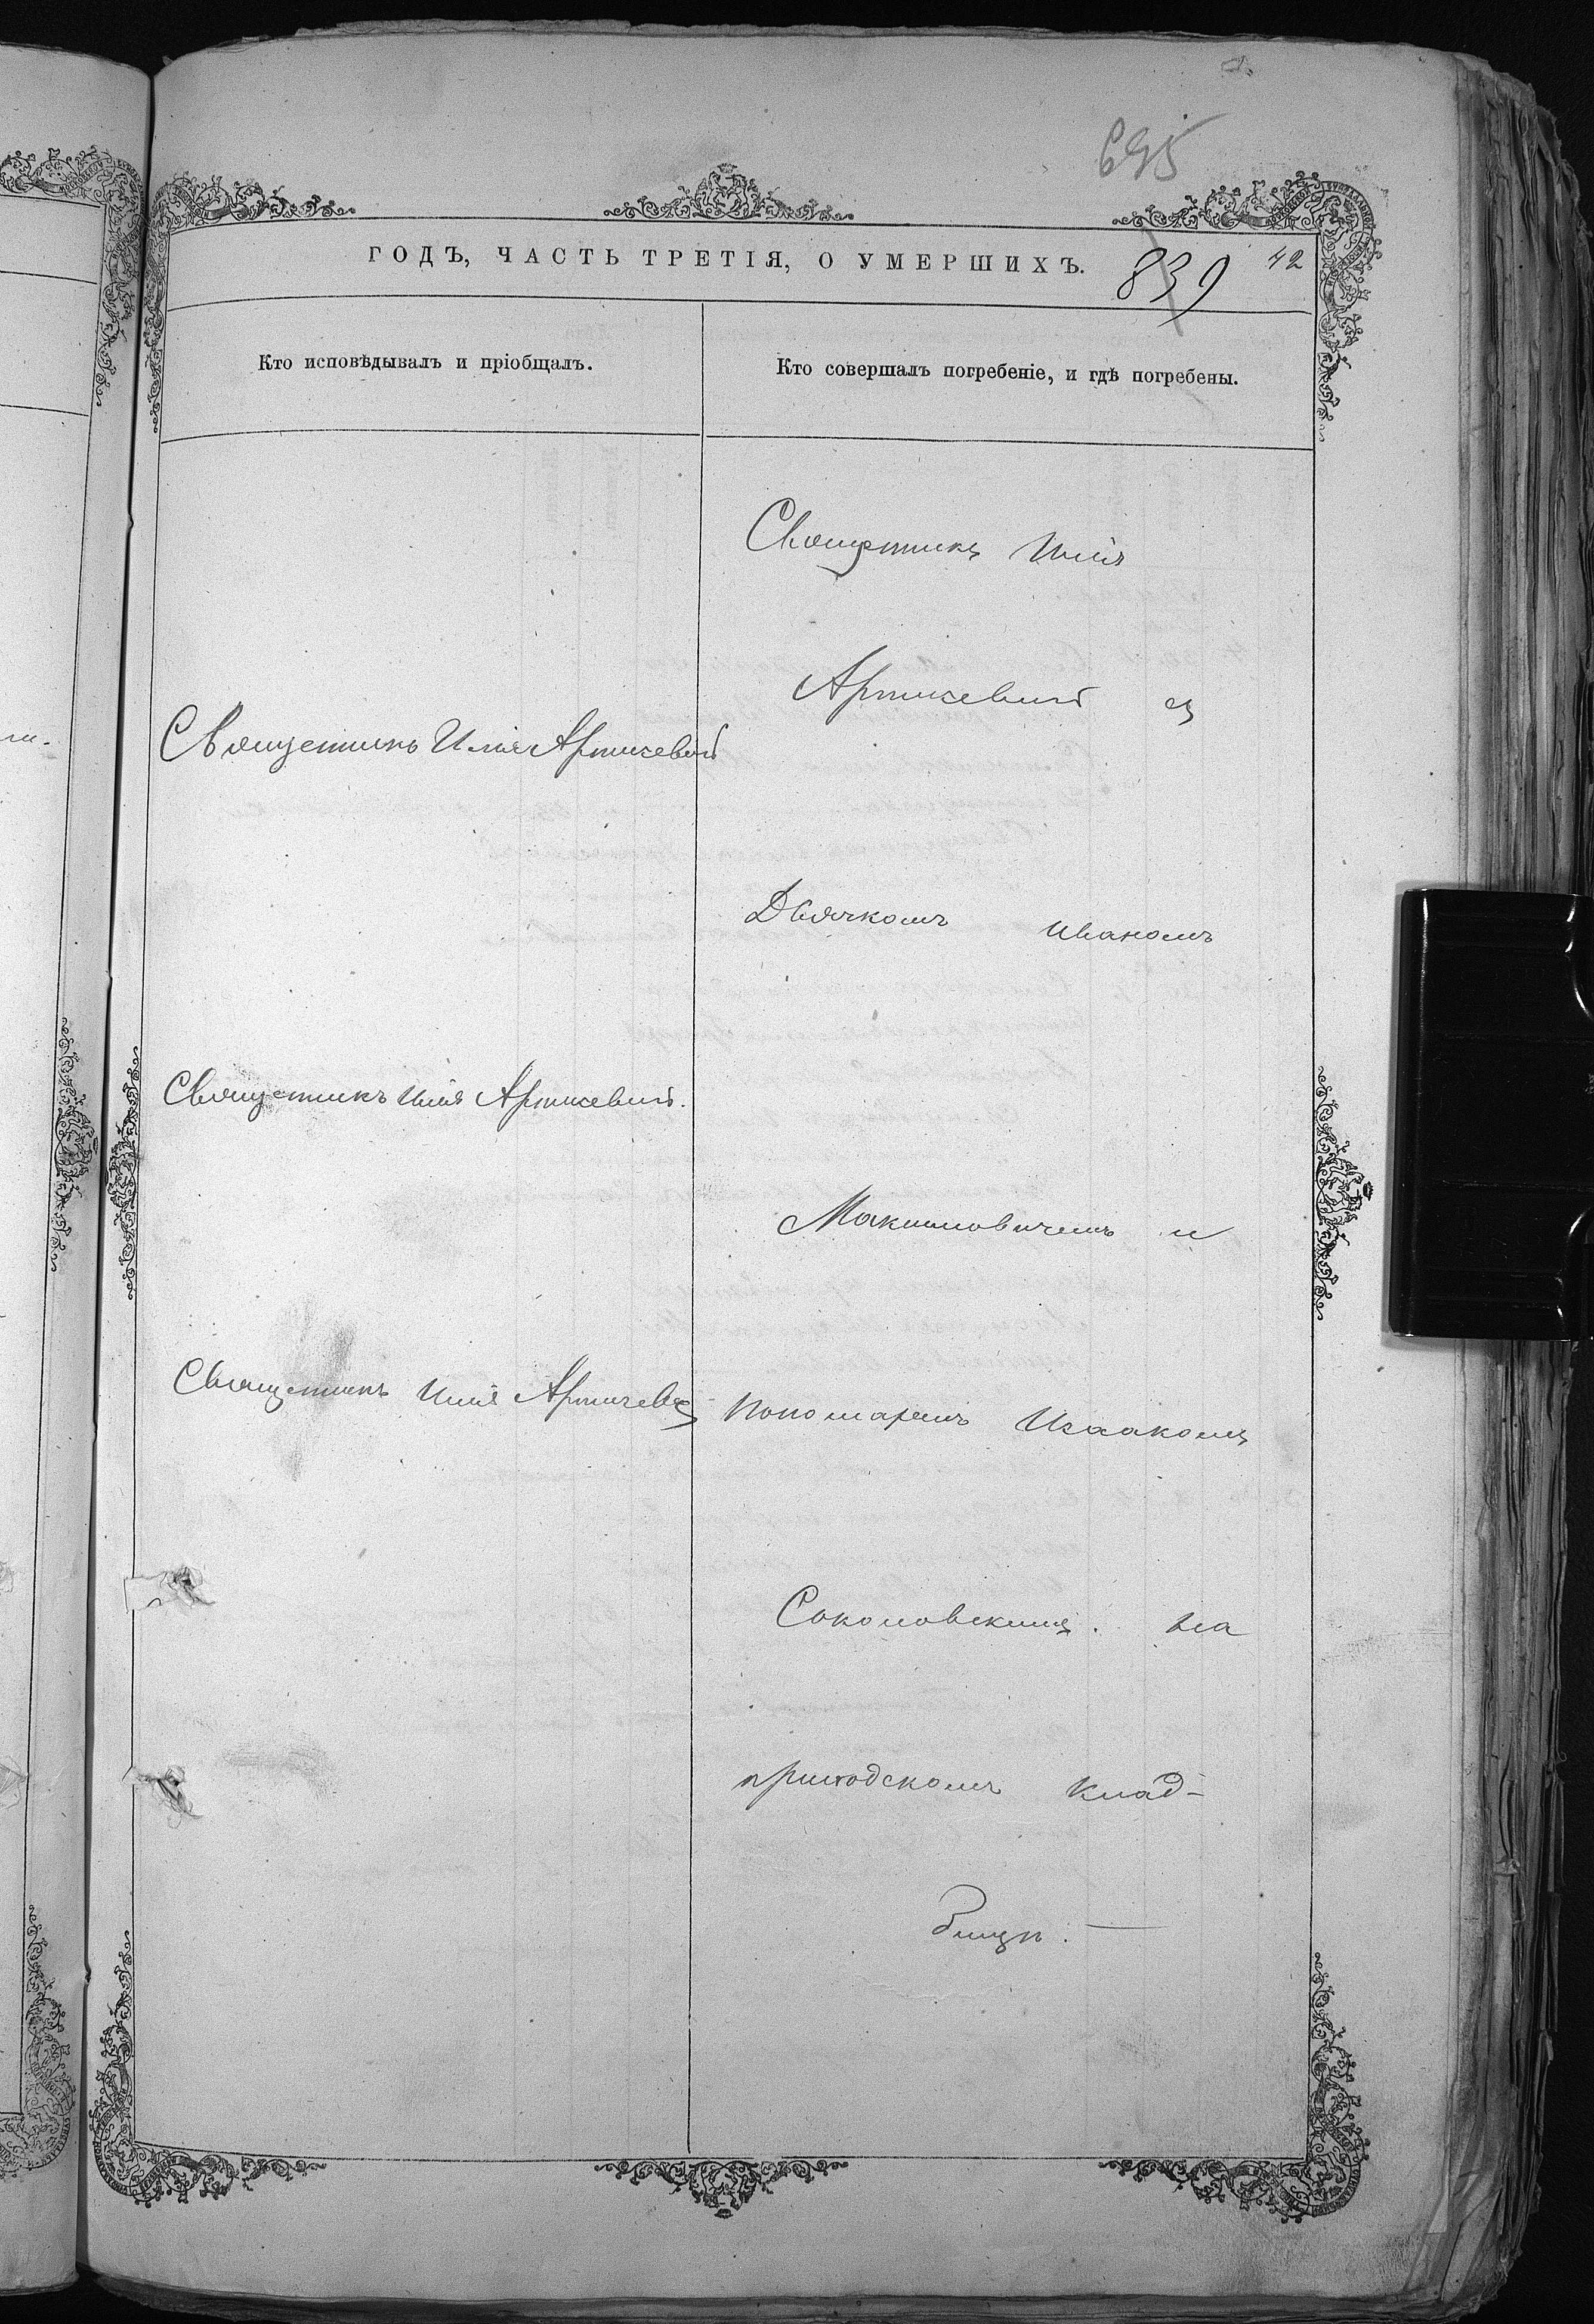 695
ГОДЪ, ЧАСТЬ ТРЕТІЯ, О УМЕРШИХЪ.
839
42
Кто исповѣдывалъ и пріобщалъ.
Священникъ Илія Артисевичъ
Священникъ Илія Артисевичъ.
Священникъ Илія
Кто совершалъ погребеніе, и гдѣ погребены.
Священникъ Илія
Артисевичъ съ
Дьячкомъ Иваномъ
Максимовичемъ и
пономаремъ Исаакомъ
Соколовскимъ. на
приходскомъ клад-
бищѣ.